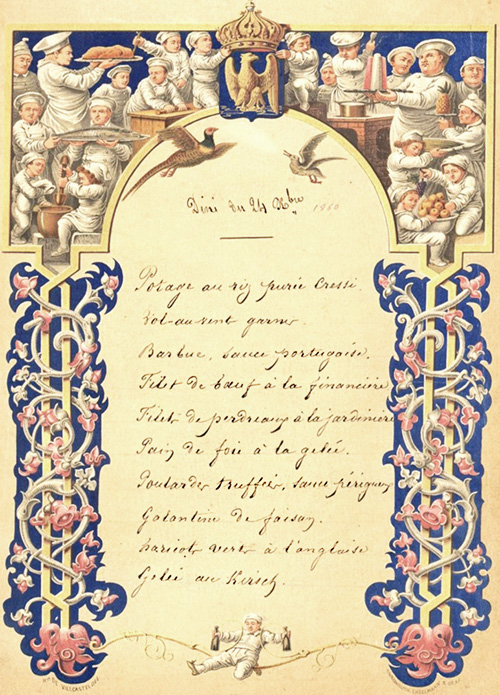 Dîné du 24 Xbre 1860
Potage au riz purée Cressi.
Vol-au-vent garni.
Barbue, sauce portugaise.
Filet de bœuf à la financière
Filets de perdreaux à la jardinière
Pain de foie à la gelée.
Poulardes truffées, sauce périgueux
Galantine de faisan.
haricots verts à l'anglaise
Gelée au Kirsch.